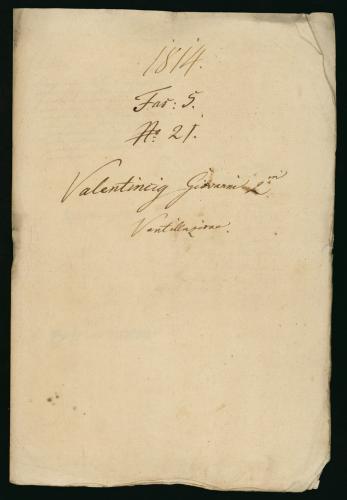 1814.
Fas: 5.
No: 21.
Valentincig Giovanni
Ventillazione.